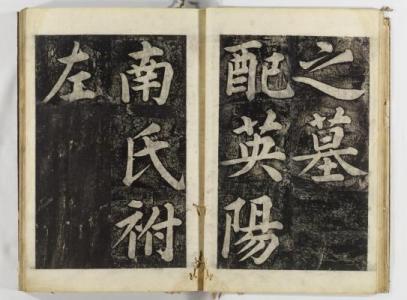 之墓
配英陽
南氏祔
左